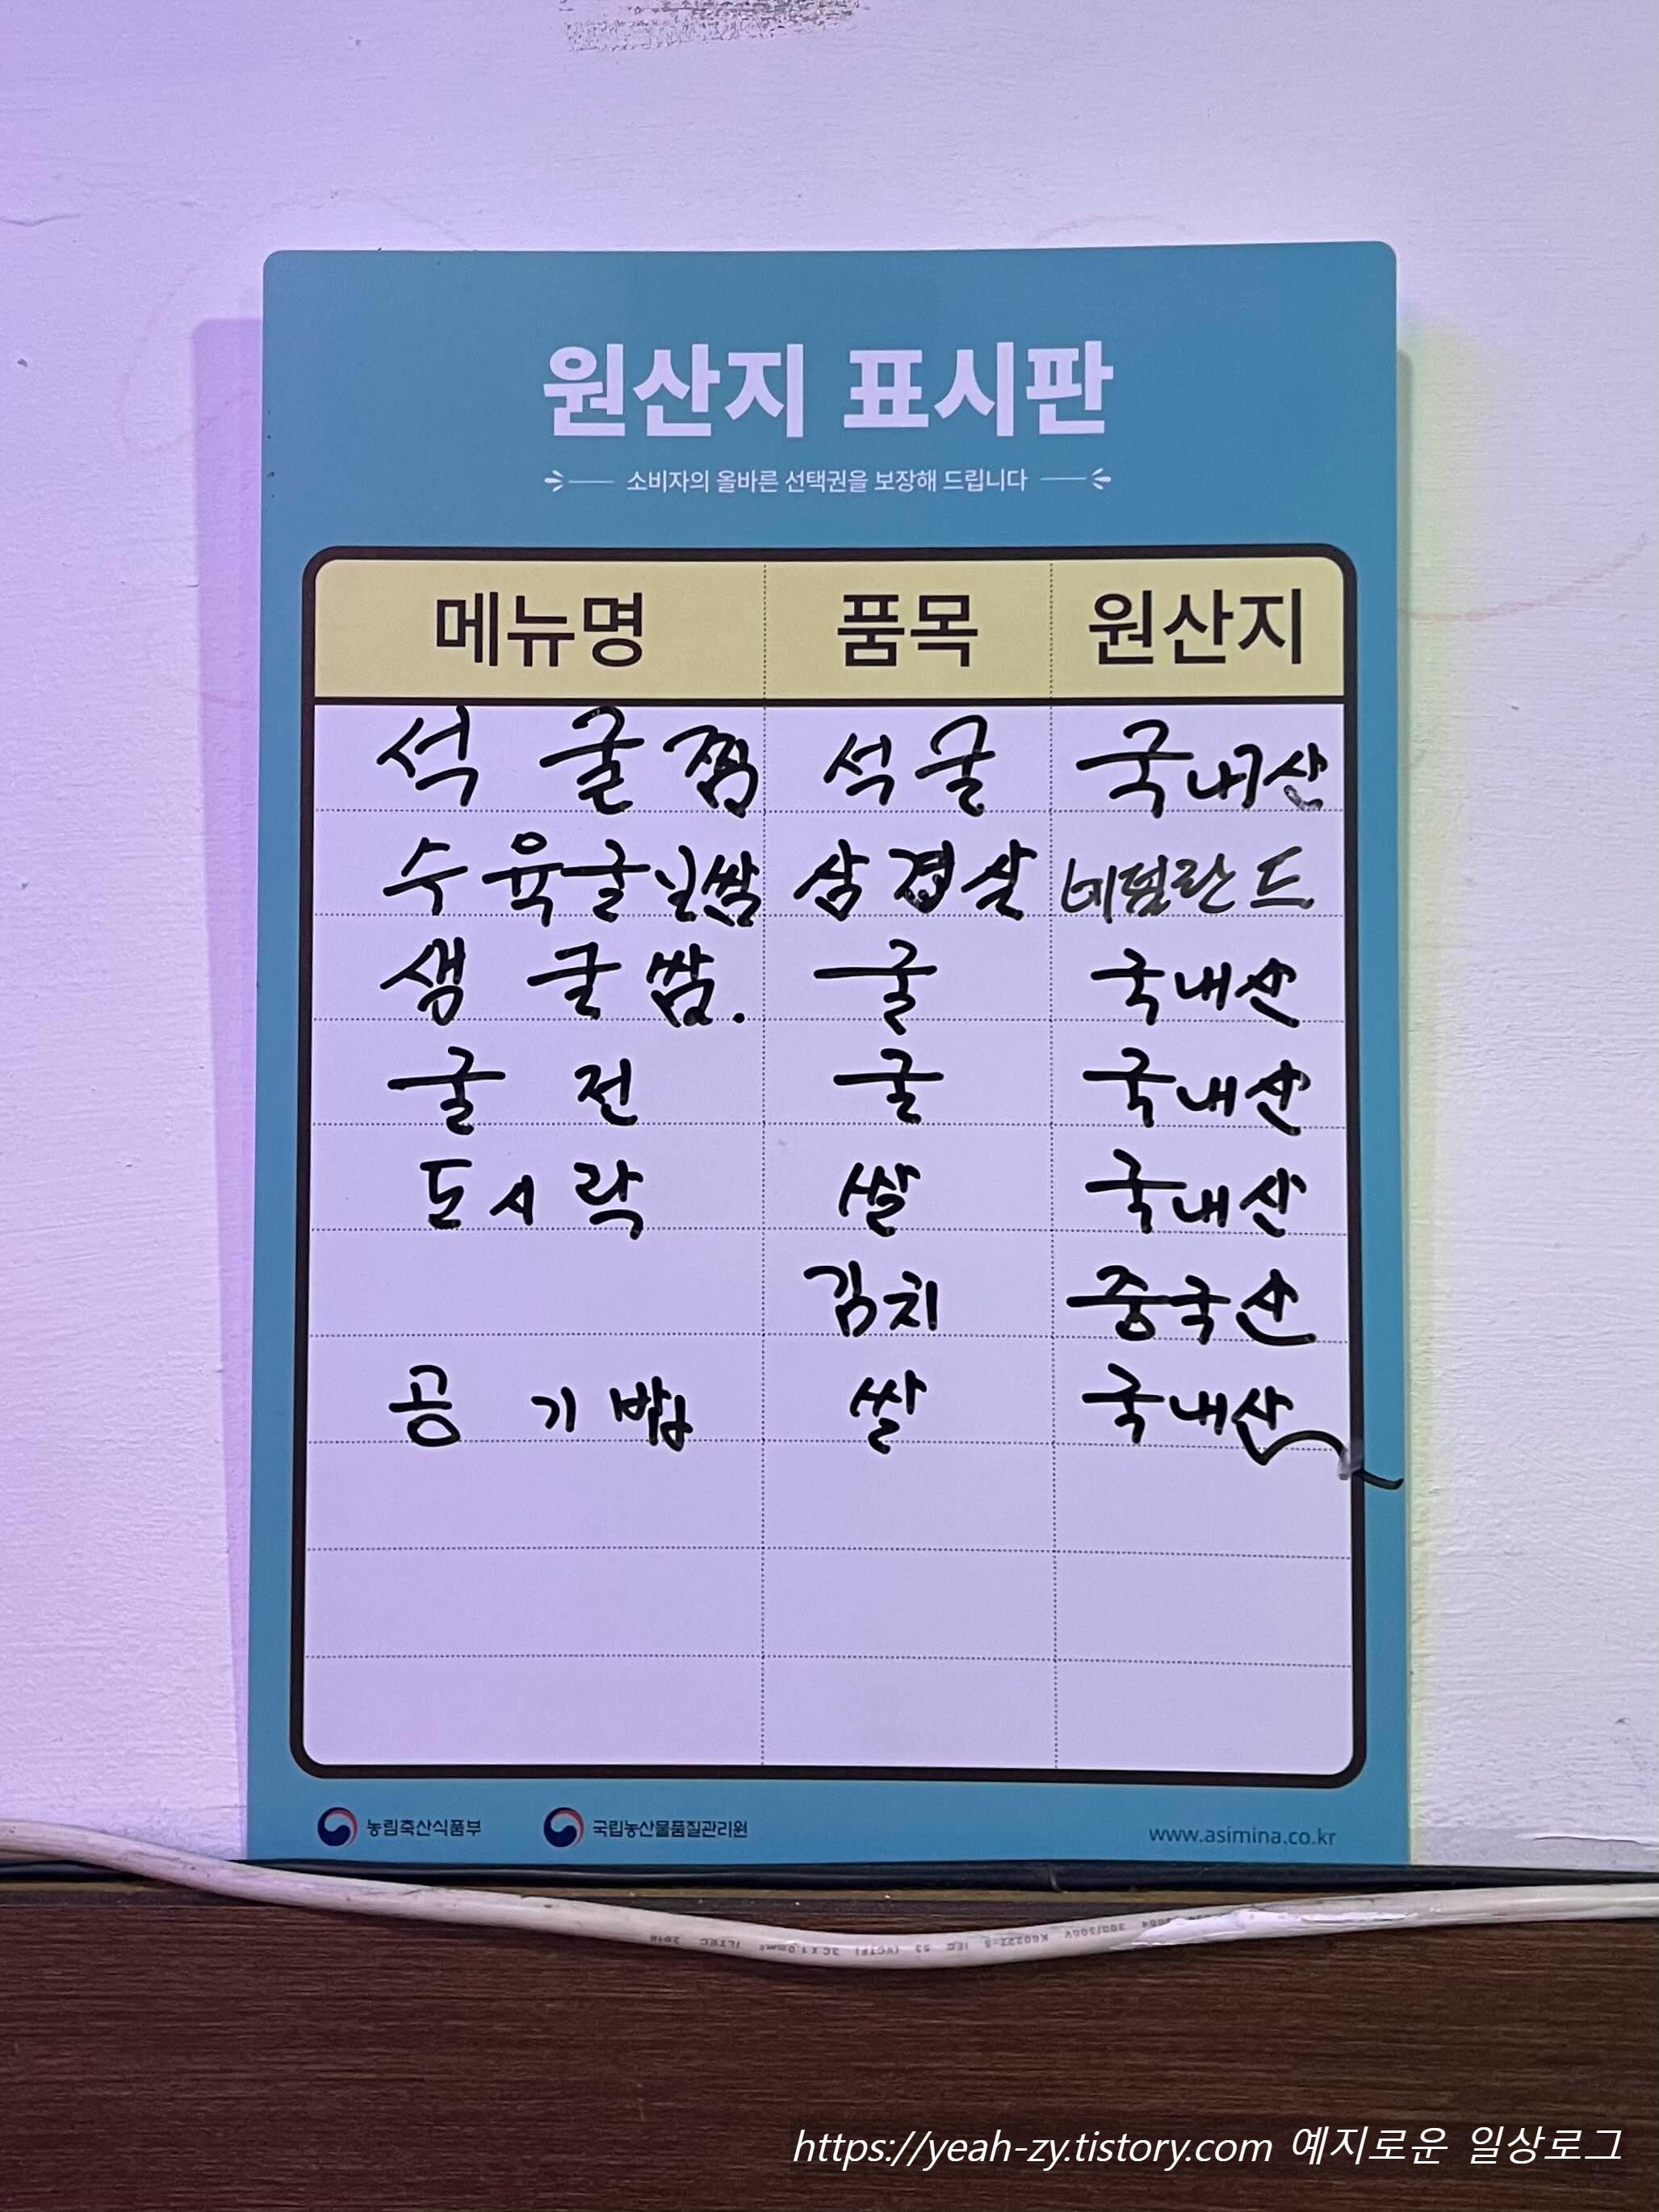 원산지 표시판
소비자의 올바른 선택권을 보장해 드립니다
메뉴명 품목 원산지
석 굴찜 석굴 국내산
수육굴보쌈 삼겹살 네덜란드
생 굴쌈. 굴 국내산
굴 전 굴 국내산
도시락 쌀 국내산
김치 중국산
공기밥 쌀 국내산
농림축산식품부 국립농산물품질관리원 www.asimina.co.kr
https://yeah-zy.tistory.com 예지로운 일상로그